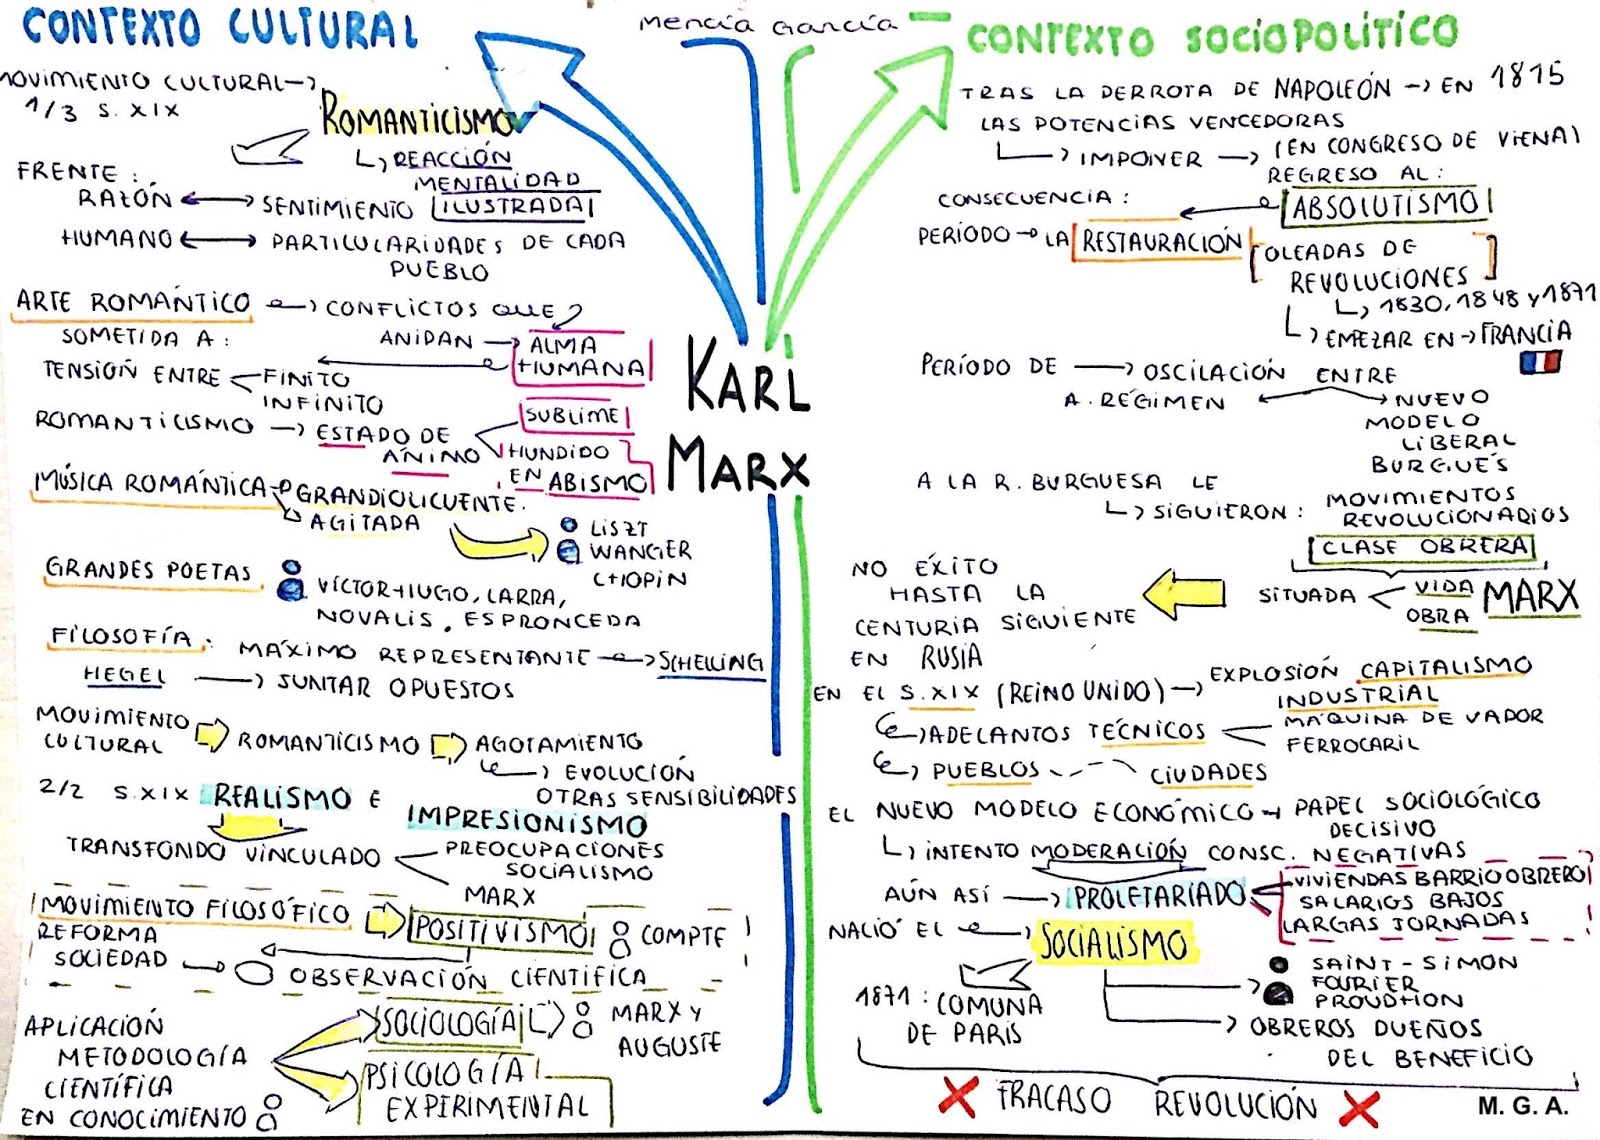 CONTEXTO CULTURAL
Mencía García
CONTEXTO SOCIOPOLÍTICO
MOVIMIENTO CULTURAL →
1/3 S. XIX
ROMANTICISMO
↳ REACCIÓN
MENTALIDAD
ILUSTRADA
FRENTE:
RAZÓN ↔ SENTIMIENTO
HUMANO ↔ PARTICULARIDADES DE CADA
PUEBLO
ARTE ROMÁNTICO → CONFLICTOS QUE
SOMETIDA A:
ANIDAN → ALMA
HUMANA
TENSIÓN ENTRE FINITO
INFINITO
ROMANTICISMO → ESTADO DE
ÁNIMO
SUBLIME
HUNDIDO
EN ABISMO
MÚSICA ROMÁNTICA → GRANDIOLICUENTE.
AGITADA
LISZT
WANGER
CHOPIN
GRANDES POETAS
VÍCTOR HUGO, LARRA,
NOVALIS, ESPRONCEDA
FILOSOFÍA: MÁXIMO REPRESENTANTE → SCHELLING
HEGEL → JUNTAR OPUESTOS
MOVIMIENTO
CULTURAL ⇒ ROMANTICISMO ⇒ AGOTAMIENTO
↳ EVOLUCIÓN
OTRAS SENSIBILIDADES
2/2 S.XIX REALISMO E
IMPRESIONISMO
TRANSFONDO VINCULADO
PREOCUPACIONES
SOCIALISMO
MARX
MOVIMIENTO FILOSÓFICO ⇒ POSITIVISMO COMPTE
REFORMA
SOCIEDAD → OBSERVACIÓN CIENTIFICA
APLICACIÓN
METODOLOGÍA
CIENTÍFICA
EN CONOCIMIENTO
SOCIOLOGÍA MARX Y
AUGUSTE
PSICOLOGÍA
EXPERIMENTAL
KARL
MARX
TRAS LA DERROTA DE NAPOLEÓN → EN 1815
LAS POTENCIAS VENCEDORAS
↳ IMPONER → (EN CONGRESO DE VIENA)
REGRESO AL:
ABSOLUTISMO
CONSECUENCIA:
PERÍODO → LA RESTAURACIÓN
OLEADAS DE
REVOLUCIONES
↳ 1830, 1848 Y 1871
↳ EMEZAR EN → FRANCIA
PERÍODO DE → OSCILACIÓN ENTRE
A. RÉGIMEN
NUEVO
MODELO
LIBERAL
BURGUÉS
A LA R. BURGUESA LE
↳ SIGUIERON: MOVIMIENTOS
REVOLUCIONARIOS
CLASE OBRERA
SITUADA VIDA
OBRA
MARX
NO ÉXITO
HASTA LA
CENTURIA SIGUIENTE
EN RUSIA
EN EL S.XIX (REINO UNIDO) → EXPLOSIÓN CAPITALISMO
INDUSTRIAL
↳ ADELANTOS TÉCNICOS
MÁQUINA DE VAPOR
FERROCARIL
↳ PUEBLOS CIUDADES
EL NUEVO MODELO ECONÓMICO → PAPEL SOCIOLÓGICO
DECISIVO
↳ INTENTO MODERACIÓN CONSC. NEGATIVAS
AÚN ASÍ → PROLETARIADO
VIVIENDAS BARRIO OBRERO
SALARIOS BAJOS
LARGAS JORNADAS
NACIÓ EL → SOCIALISMO
SAINT-SIMON
FOURIER
PROUDHON
OBREROS DUEÑOS
DEL BENEFICIO
1871: COMUNA
DE PARÍS
FRACASO REVOLUCIÓN
M. G. A.